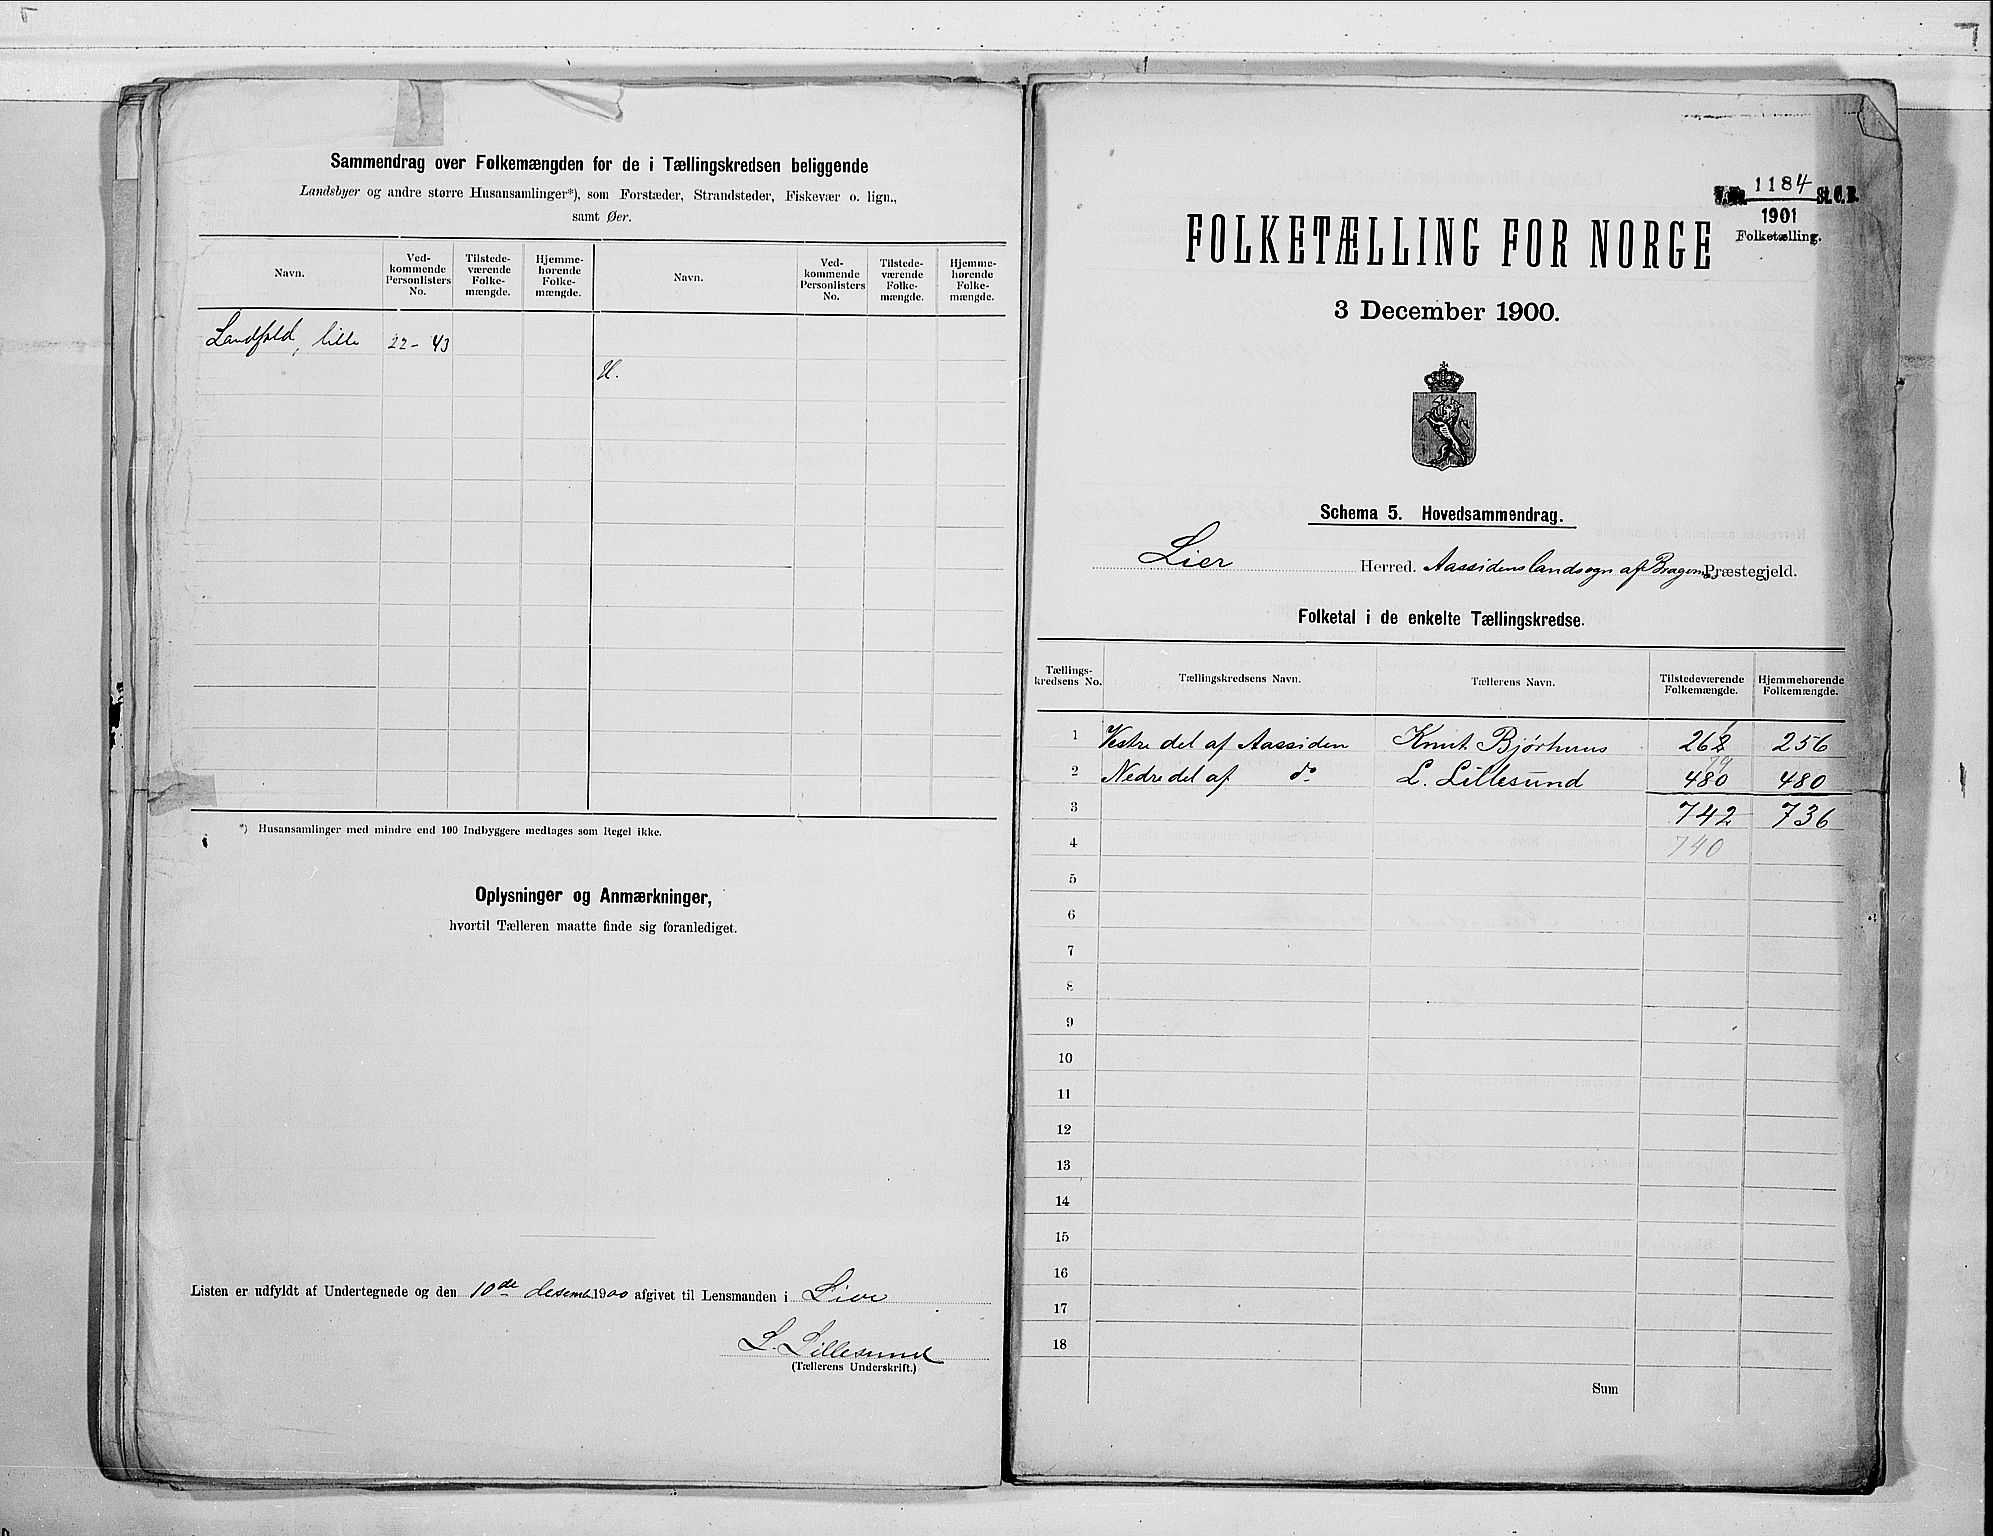 Sammendrag over Folkemængden for de i Tællingskredsen beliggende
Landsbyer og andre større Husansamlinger*), som Forstæder, Strandsteder, Fiskevær o. lign.,
samt Øer.
Navn. Ved-kommende Personlisters No. Tilstede-værende Folke-mængde. Hjemme-hørende Folke-mængde. Navn. Ved-kommende Personlisters No. Tilstede-værende Folke-mængde. Hjemme-hørende Folke-mængde.
Landfald, lille 22-43
*) Husansamlinger med mindre end 100 Indbyggere medtages som Regel ikke.
Oplysninger og Anmærkninger,
hvortil Tælleren maatte finde sig foranlediget.
Listen er udfyldt af Undertegnede og den 10de desemb. 1900 afgivet til Lensmanden i Lier
L. Lillesund
(Tællerens Underskrift.)
1184 St. C. B.
1901
Folketælling.
FOLKETÆLLING FOR NORGE
3 December 1900.
Schema 5. Hovedsammendrag.
Lier Herred. Aassidens landsogn af Bragernes Præstegjeld.
Folketal i de enkelte Tællingskredse.
Tællings-kredsens No. Tællingskredsens Navn. Tællerens Navn. Tilstedeværende Folkemængde. Hjemmehørende Folkemængde.
1 Vestre del af Aassiden Knut Bjørhuus 262 256
2 Nedre del af do L. Lillesund 480 480
3 742 736
4 740
5
6
7
8
9
10
11
12
13
14
15
16
17
18
Sum